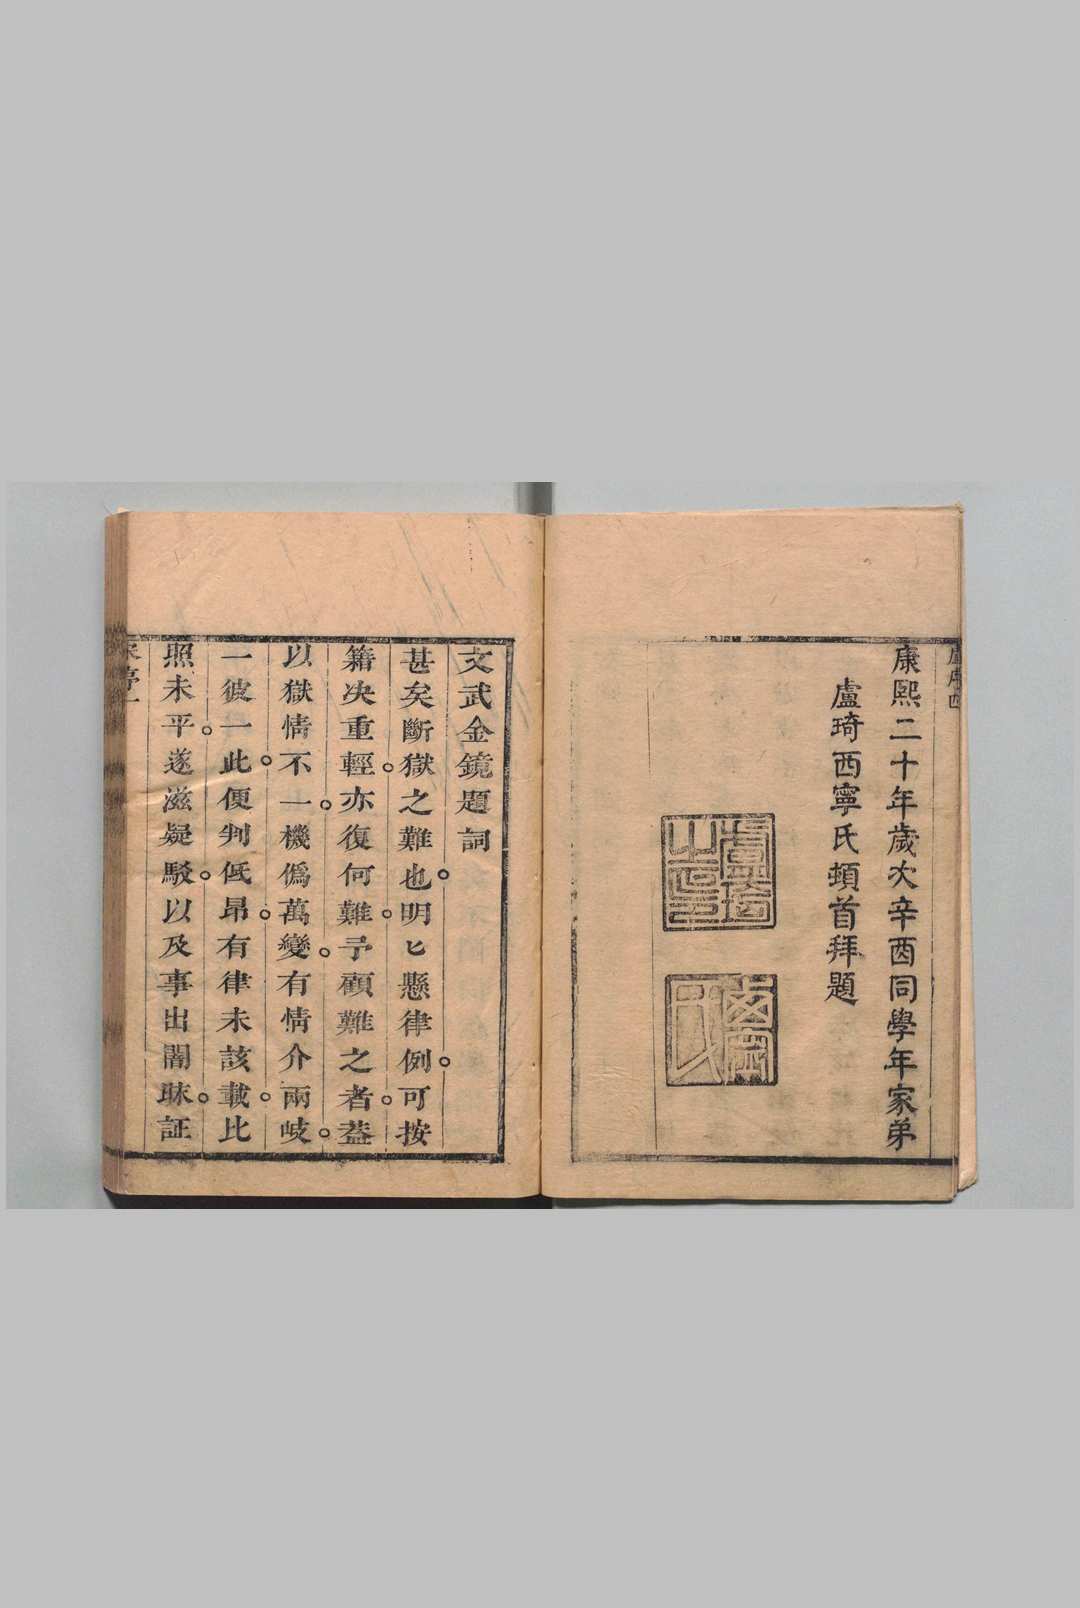 盧序四
康熙二十年歲次辛酉同學年家弟
盧琦西寧氏頓首拜題
盧琦之印
西寧氏
文武金鏡題詞
甚矣斷獄之難也明匕懸律例可按
籍决重輕亦復何難予顧難之者葢
以獄情不一機僞萬變有情介兩岐
一彼一此便判低昻有律未該載比
照未平遂滋疑駁以及事出闇昧証